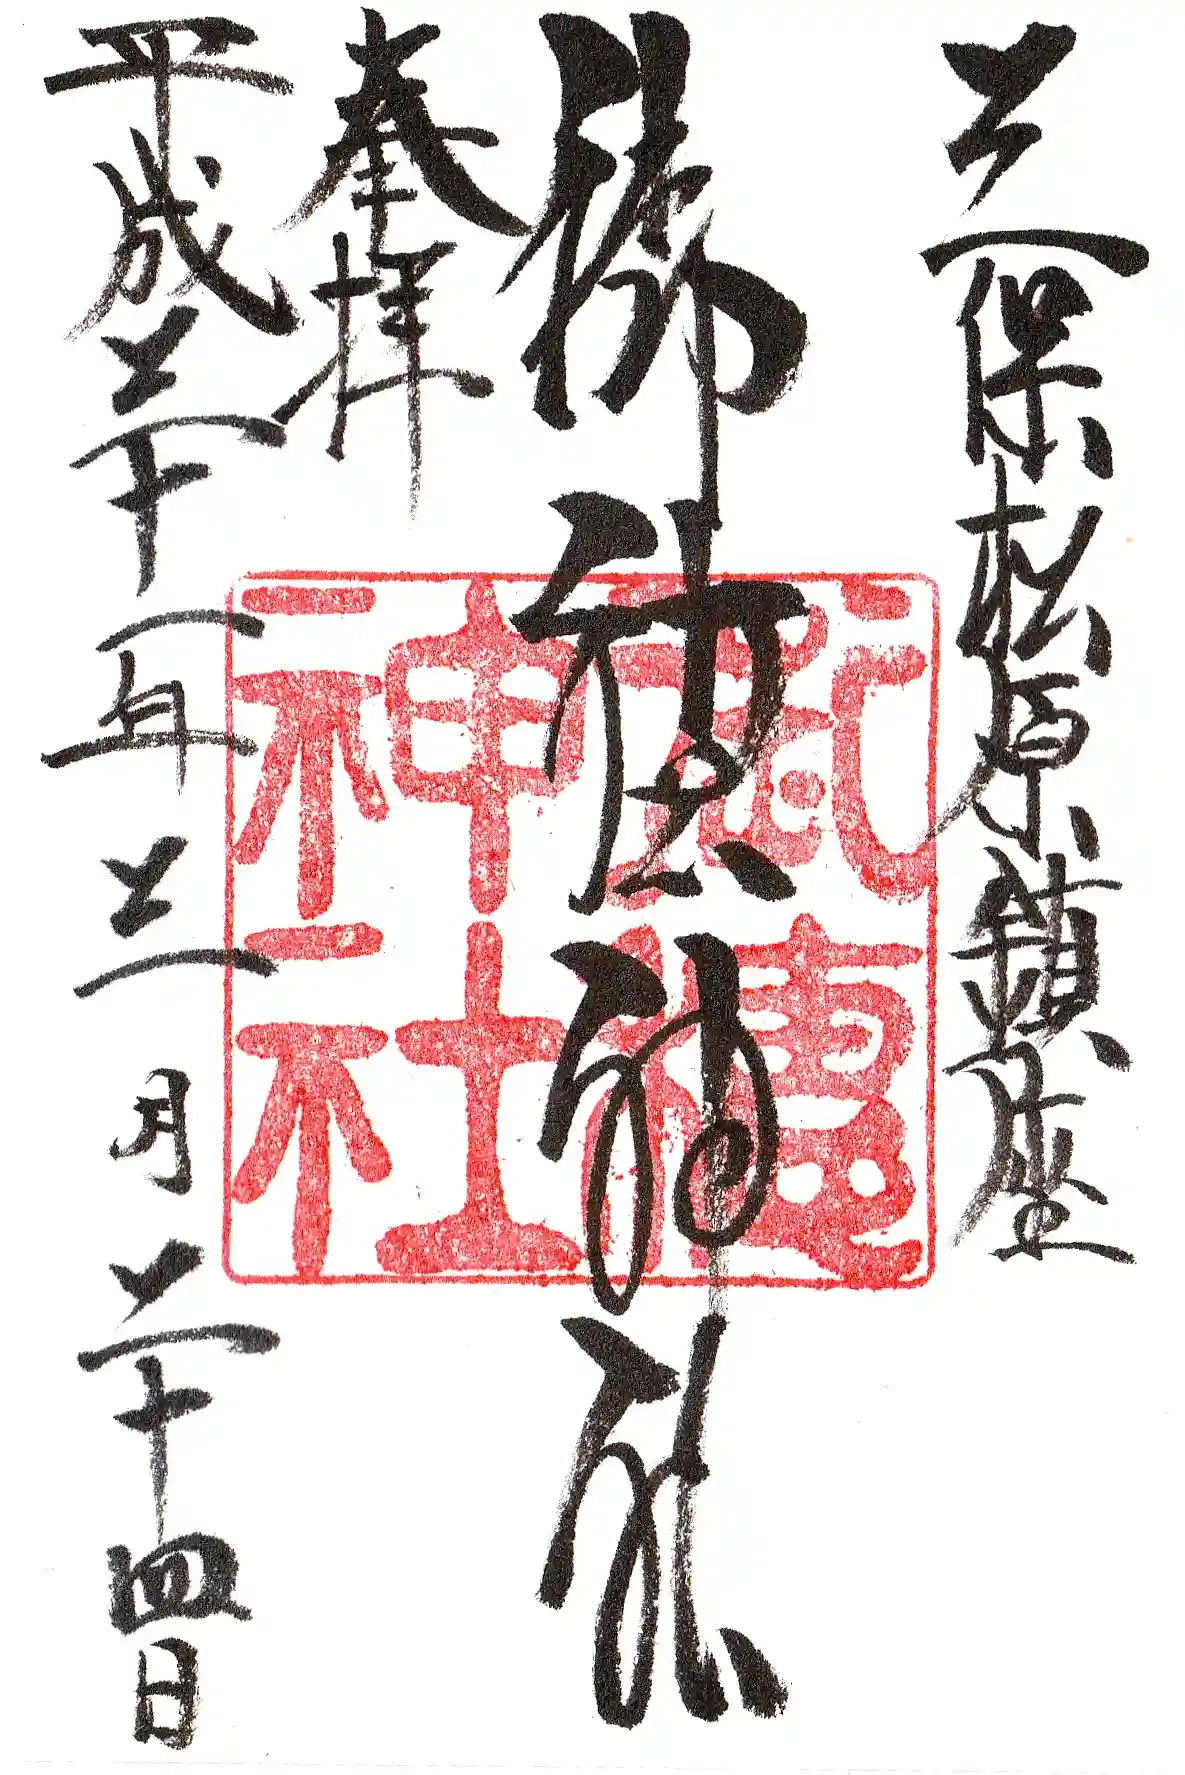 三保松原鎮座
御穂神社
奉拝
平成三十一年三月二十四日
御穂
神社